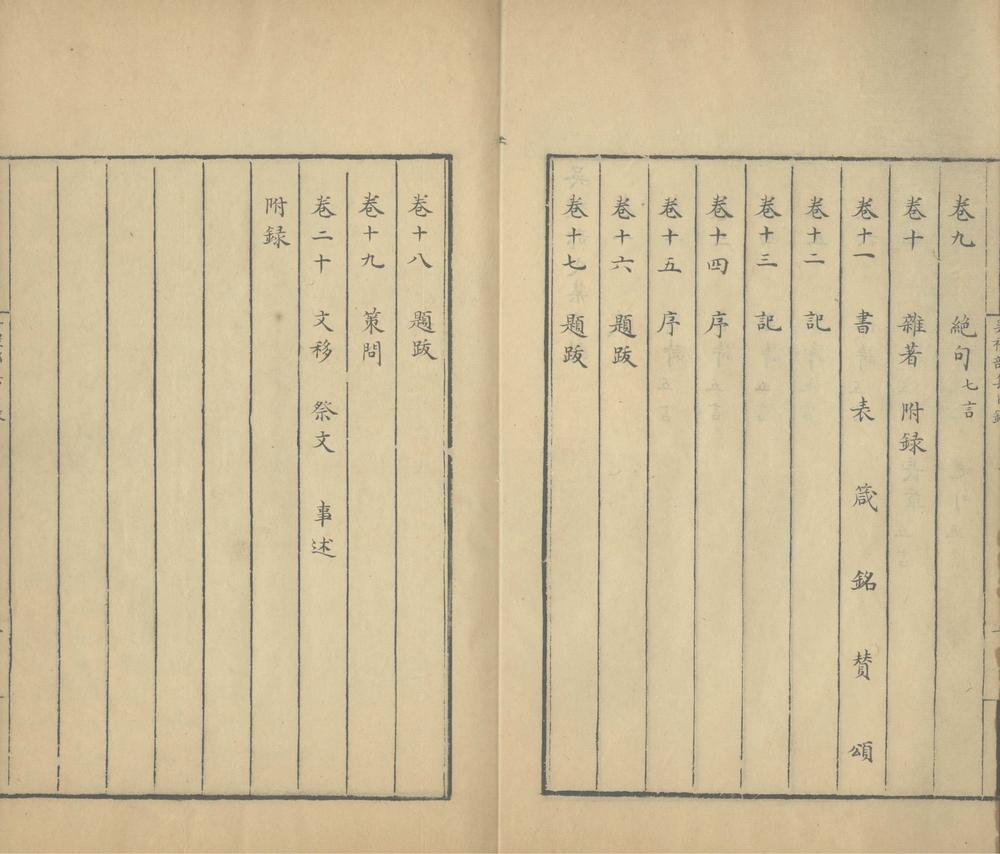 卷九　絕句七言
卷十　雜著　附録
卷十一　書　表　箴　銘　賛　頌
卷十二　記
卷十三　記
卷十四　序
卷十五　序
卷十六　題跋
卷十七　題跋
卷十八　題跋
卷十九　策問
卷二十　文移　祭文　事述
附録